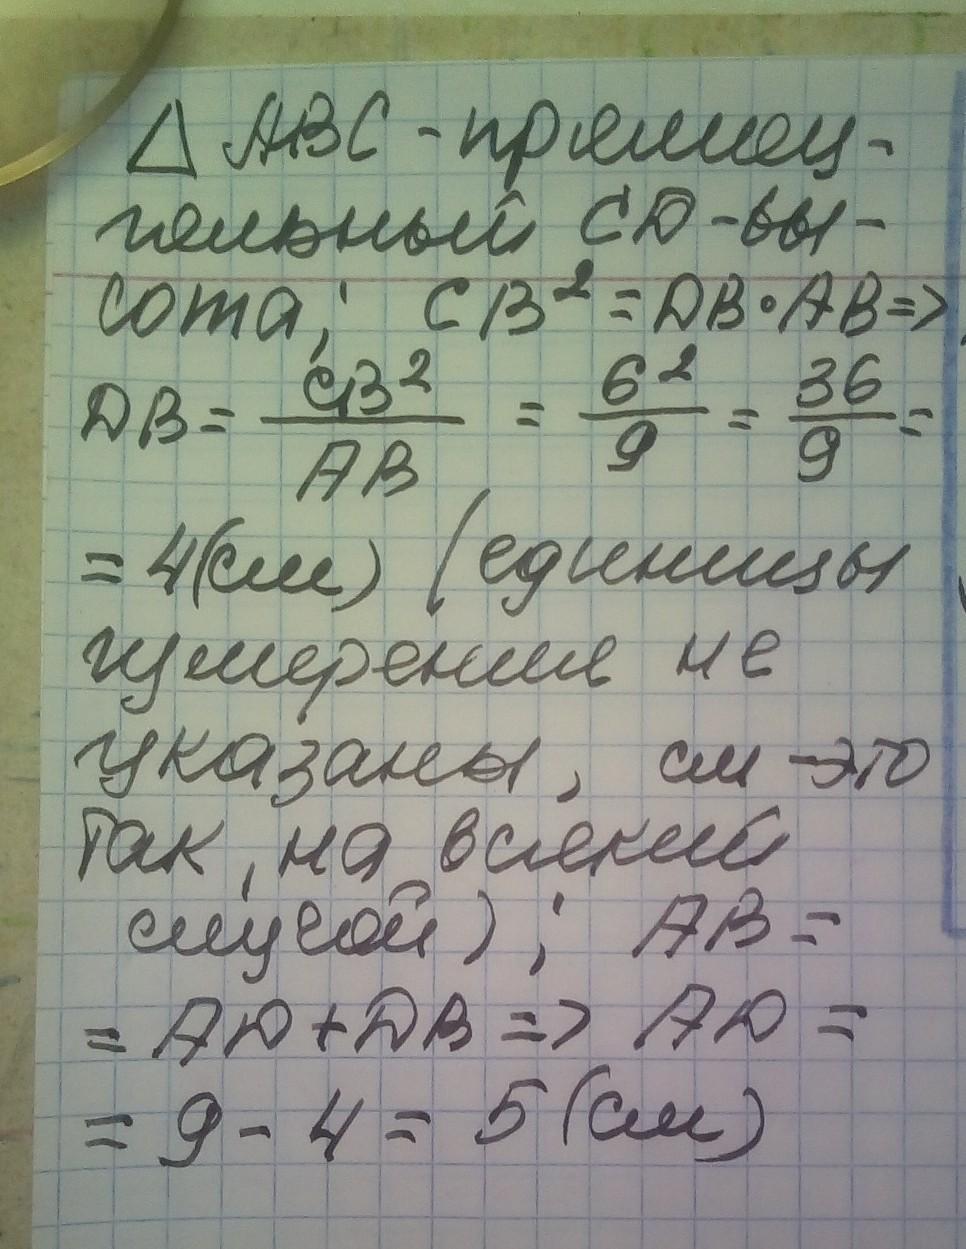 △ ABC - прямоу-
гольный CD - вы-
сота; CB² = DB • AB =>
DB = CB²/AB = 6²/9 = 36/9 =
= 4(см) (единицы
измерения не
указаны, см - это
так, на всякий
случай); AB =
= AD + DB => AD =
= 9 - 4 = 5 (см)